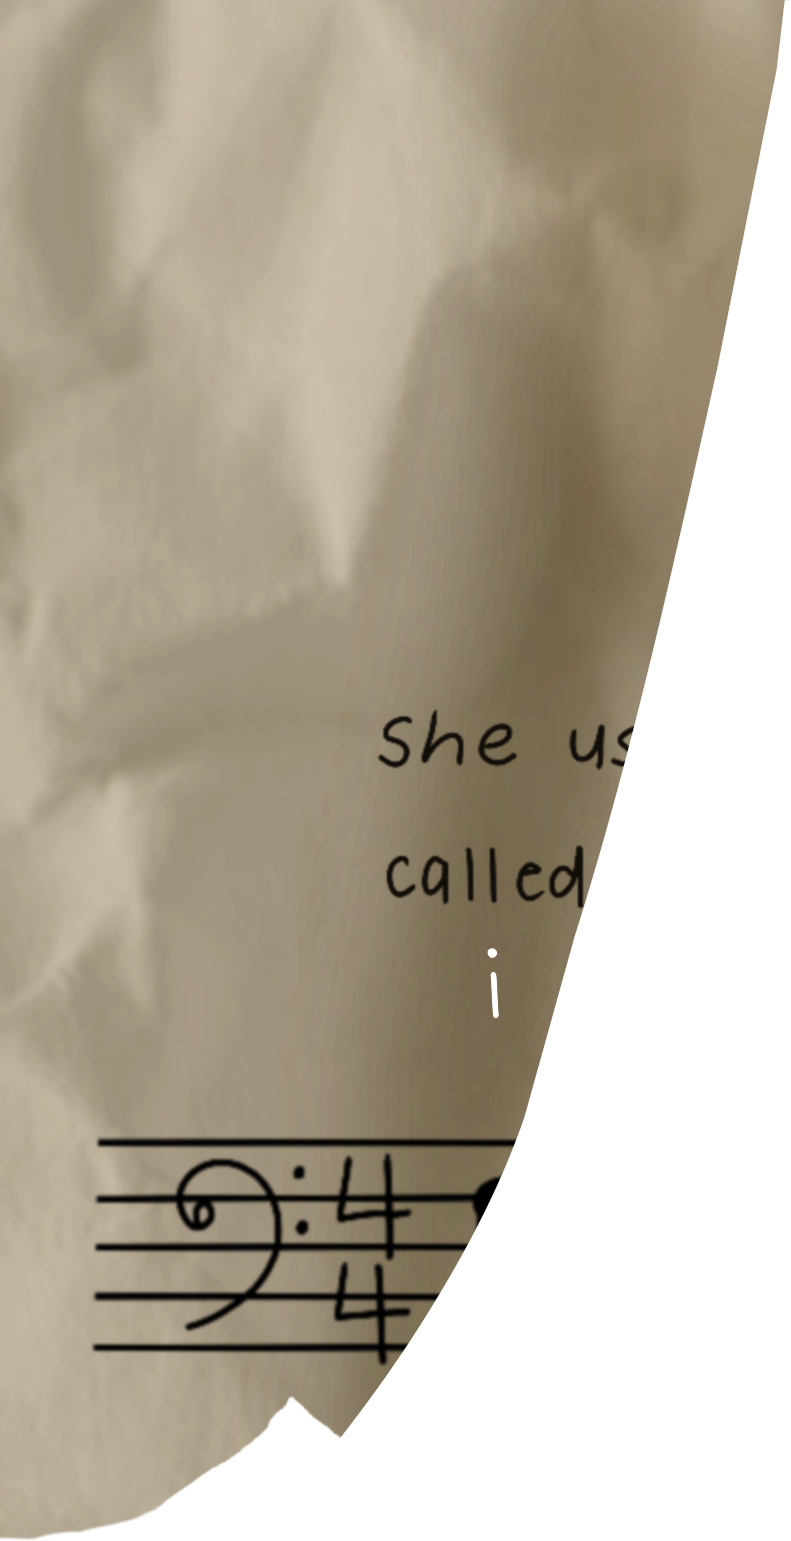 she us
called
i
4
4